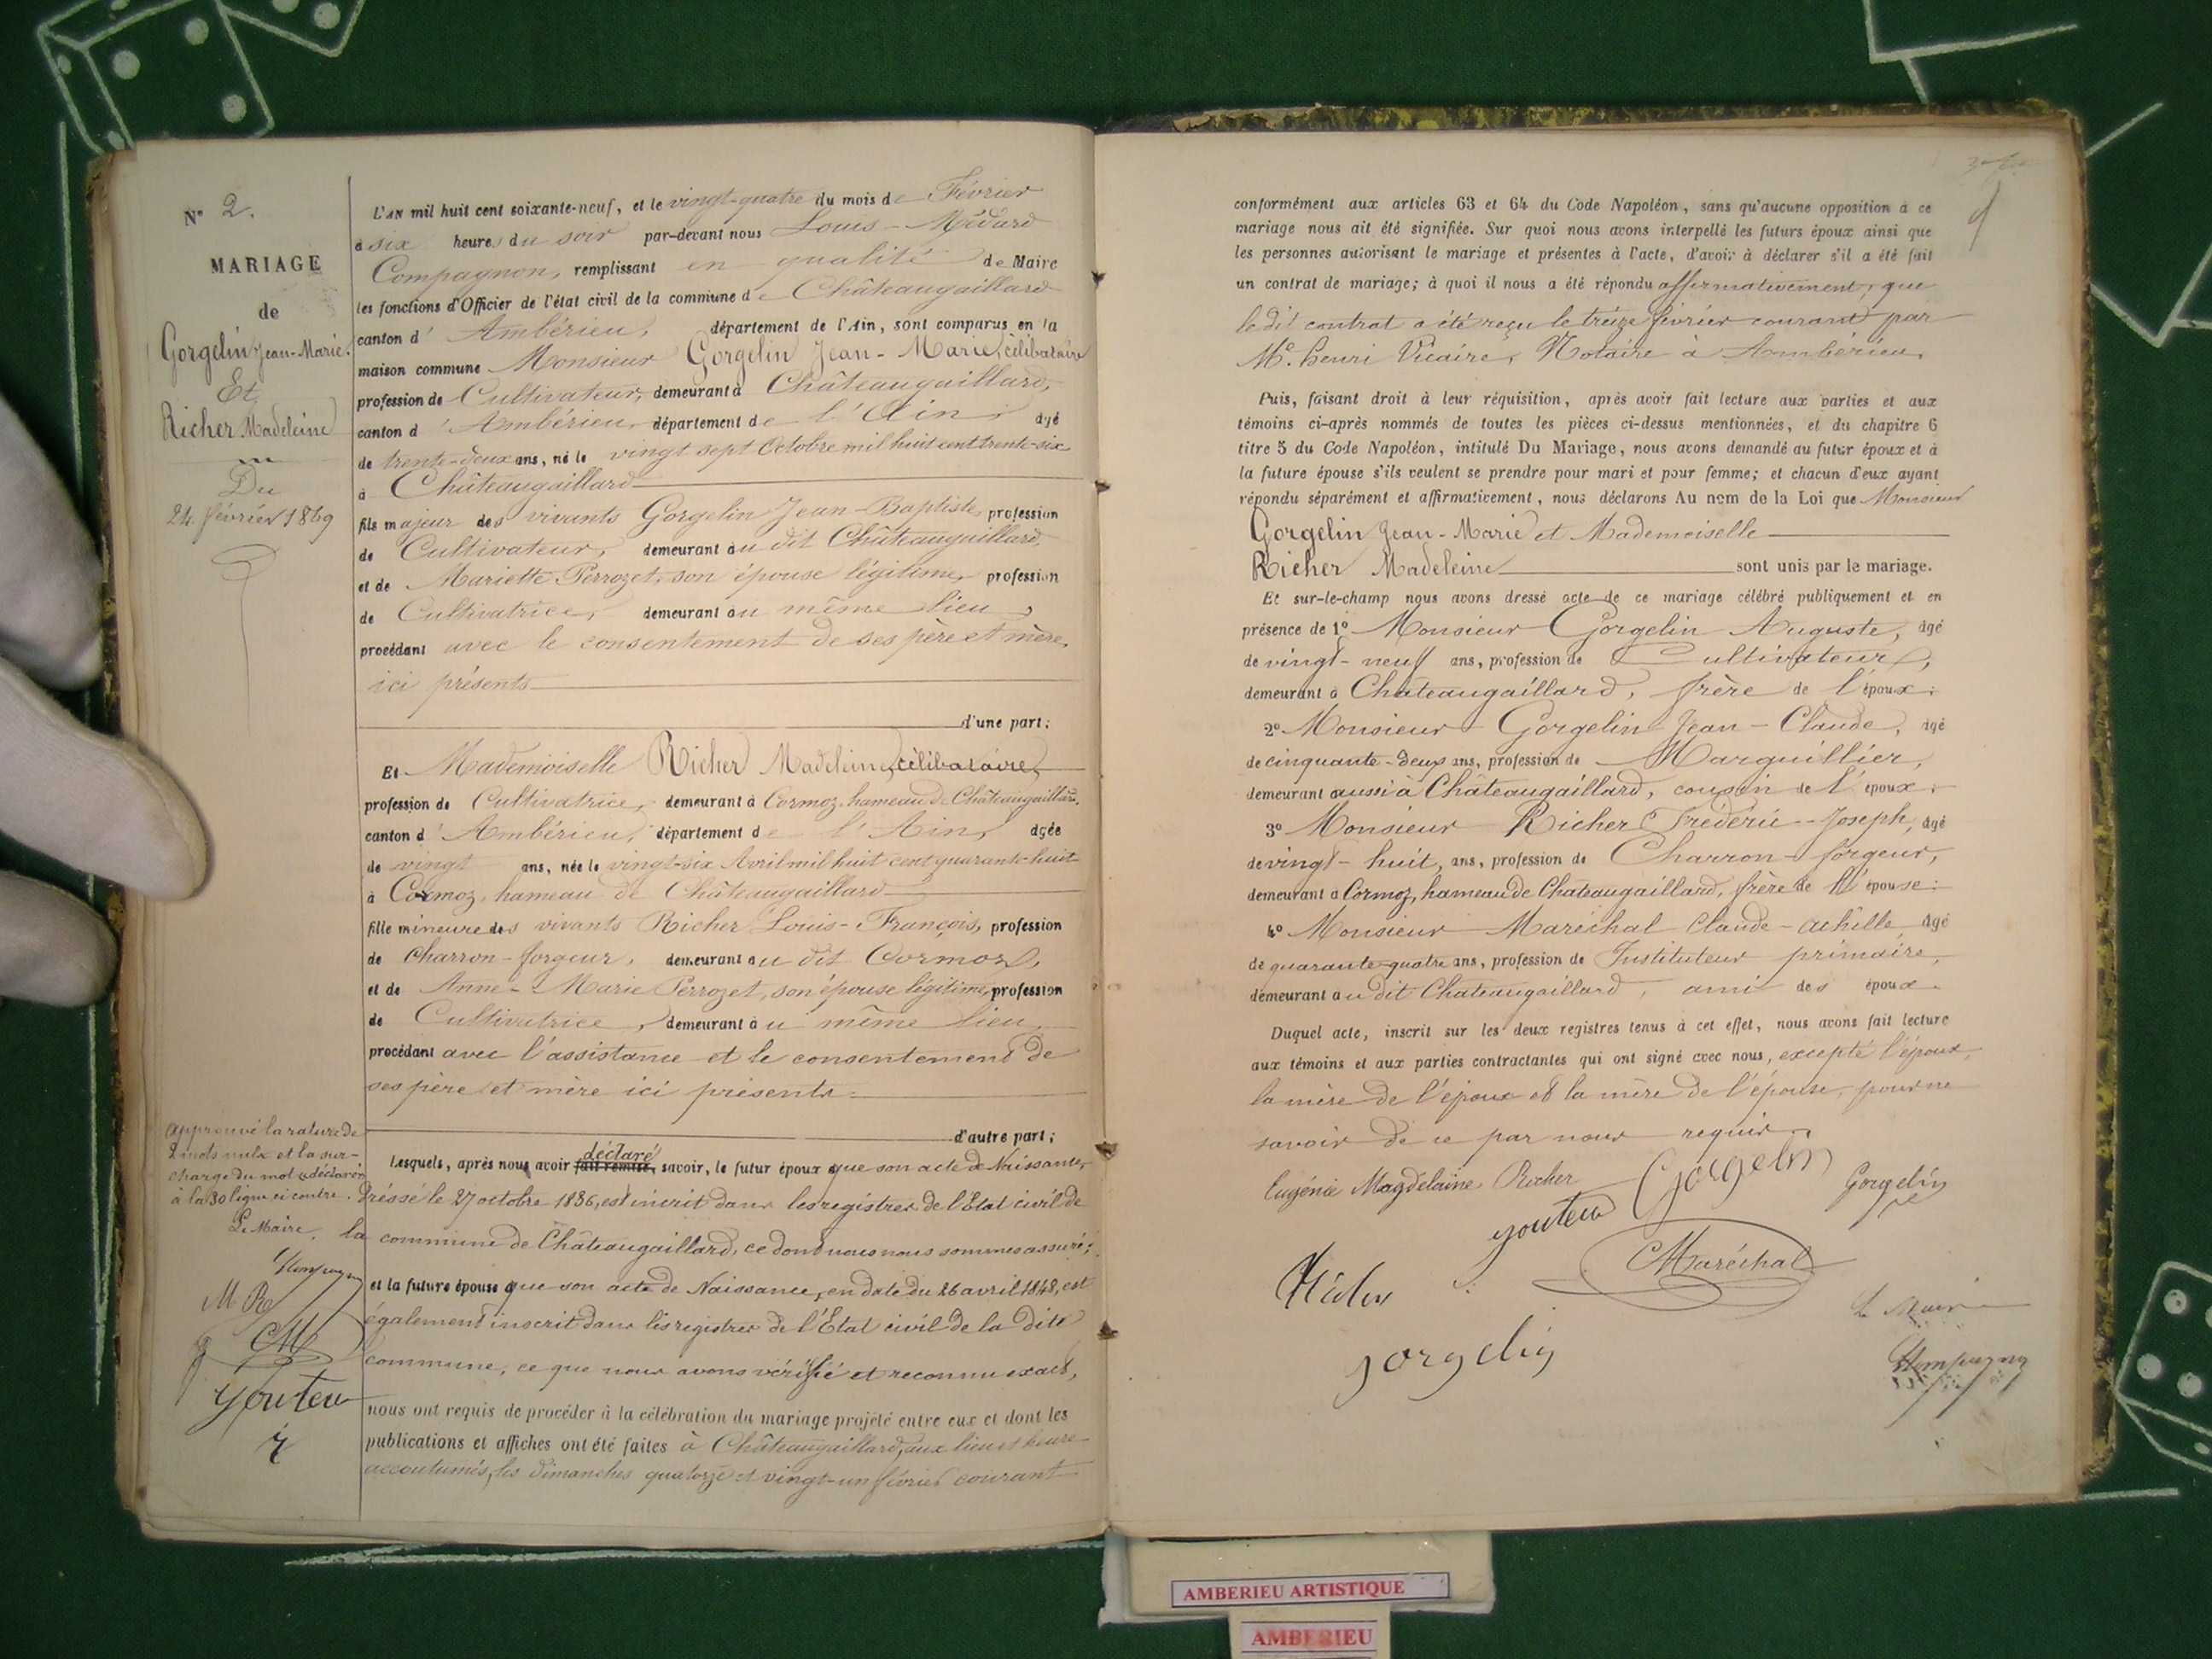 N° 2.
MARIAGE
de
Gorgelin Jean-Marie.
Et
Richer Madeleine
Du
24 février 1869
L'AN mil huit cent soixante-neuf, et le vingt-quatre du mois de Février
à six heures du soir par-devant nous Louis-Médard
Compagnon, remplissant en qualité de Maire
les fonctions d'Officier de l'état civil de la commune de Châteaugaillard
canton d'Ambérieu, département de l'Ain, sont comparus en la
maison commune Monsieur Gorgelin Jean-Marie, célibataire
profession de Cultivateur, demeurant à Châteaugaillard,
canton d'Ambérieu, département de l'Ain, âgé
de trente-deux ans, né le vingt sept Octobre mil huit cent trente-six
à Châteaugaillard
fils majeur des vivants Gorgelin Jean-Baptiste, profession
de Cultivateur, demeurant au dit Châteaugaillard,
et de Mariette Perrozet, son épouse légitime, profession
de Cultivatrice, demeurant au même lieu,
procédant avec le consentement de ses père et mère,
ici présents
d'une part;
Et Mademoiselle Richer Madeleine, célibataire,
profession de Cultivatrice, demeurant à Cormoz, hameau de Châteaugaillard,
canton d'Ambérieu, département de l'Ain, âgée
de vingt ans, née le vingt-six Avril mil huit cent quarante-huit
à Cormoz, hameau de Châteaugaillard
fille mineure des vivants Richer Louis-François, profession
de charron-forgeur, demeurant au dit Cormoz,
et de Anne-Marie Perrozet, son épouse légitime, profession
de Cultivatrice, demeurant au même lieu,
procédant avec l'assistance et le consentement de
ses père et mère ici présents.
d'autre part;
approuvé la rature de
2 mots nuls et la sur-
charge du mot «déclaré»
à la 30 ligne ci contre.
Le Maire,
déclaré
Lesquels, après nous avoir fait remise, savoir, le futur époux que son acte de Naissance,
dressé le 27 octobre 1836, est inscrit dans les registres de l'Etat civil de
la commune de Châteaugaillard, ce dont nous nous sommes assuré;
et la future épouse que son acte de Naissance, en date du 26 avril 1848, est
également inscrit dans les registres de l'Etat civil de la dite
commune, ce que nous avons vérifié et reconnu exact,
nous ont requis de procéder à la célébration du mariage projeté entre eux et dont les
publications et affiches ont été faites à Châteaugaillard, aux lieu et heure
accoutumés, les dimanches quatorze et vingt-un février courant
Compagnon
M R
CM
youteu
conformément aux articles 63 et 64 du Code Napoléon, sans qu'aucune opposition à ce
mariage nous ait été signifiée. Sur quoi nous avons interpellé les futurs époux ainsi que
les personnes autorisant le mariage et présentes à l'acte, d'avoir à déclarer s'il a été fait
un contrat de mariage; à quoi il nous a été répondu affirmativement, que
le dit contrat a été reçu le treize février courant par
Me. henri Vicaire, Notaire à Ambérieu.
Puis, faisant droit à leur réquisition, après avoir fait lecture aux parties et aux
témoins ci-après nommés de toutes les pièces ci-dessus mentionnées, et du chapitre 6
titre 5 du Code Napoléon, intitulé Du Mariage, nous avons demandé au futur époux et à
la future épouse s'ils veulent se prendre pour mari et pour femme; et chacun d'eux ayant
répondu séparément et affirmativement, nous déclarons Au nom de la Loi que Monsieur
Gorgelin Jean-Marie et Mademoiselle
Richer Madeleine sont unis par le mariage.
Et sur-le-champ nous avons dressé acte de ce mariage célébré publiquement et en
présence de 1° Monsieur Gorgelin Auguste, âgé
de vingt-neuf ans, profession de Cultivateur,
demeurant à Châteaugaillard, frère de l'époux;
2° Monsieur Gorgelin Jean-Claude, âgé
de cinquante-deux ans, profession de Marguillier,
demeurant aussi à Châteaugaillard, cousin de l'époux;
3° Monsieur Richer Fréderic-Joseph, âgé
de vingt-huit, ans, profession de Charron-forgeur,
demeurant à Cormoz, hameau de Châteaugaillard, frère de l'épouse;
4° Monsieur Maréchal Claude-achille, âgé
de quarante-quatre ans, profession de Instituteur primaire,
demeurant au dit Chateaugaillard, ami des époux.
Duquel acte, inscrit sur les deux registres tenus à cet effet, nous avons fait lecture
aux témoins et aux parties contractantes qui ont signé avec nous, excepté l'époux,
la mère de l'époux et la mère de l'épouse, pour ne
savoir de ce par nous requis.
Eugénie Magdelaine Richer
Gorgelin
Gorgelin
youteu
Maréchal
Le Maire
gorgelin
Compagnon
AMBERIEU ARTISTIQUE
AMBERIEU